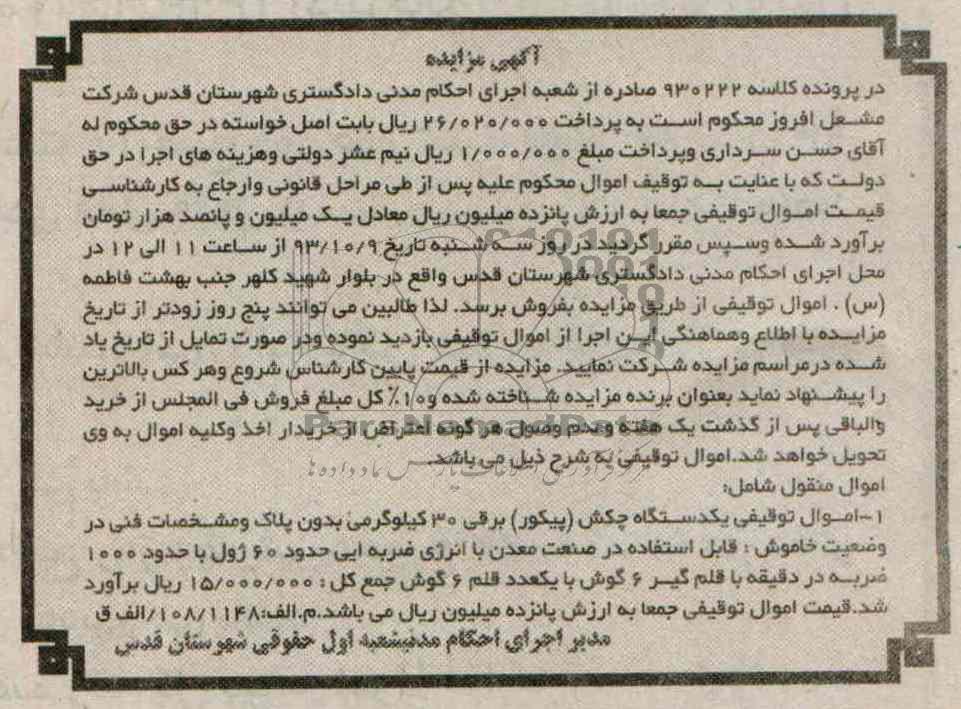 آگهی مزایده
در پرونده کلاسه ۹۳۰۲۲۲ صادره از شعبه اجرای احکام مدنی دادگستری شهرستان قدس شرکت
مشعل افروز محکوم است به پرداخت ۲۶/۰۲۰/۰۰۰ ریال بابت اصل خواسته در حق محکوم له
آقای حسن سرداری وپرداخت مبلغ ۱/۰۰۰/۰۰۰ ریال نیم عشر دولتی وهزینه های اجرا در حق
دولت که با عنایت به توقیف اموال محکوم علیه پس از طی مراحل قانونی وارجاع به کارشناسی
قیمت اموال توقیفی جمعا به ارزش پانزده میلیون ریال معادل یک میلیون و پانصد هزار تومان
برآورد شده وسپس مقرر گردید در روز سه شنبه تاریخ ۹۳/۱۰/۹ از ساعت ۱۱ الی ۱۲ در
محل اجرای احکام مدنی دادگستری شهرستان قدس واقع در بلوار شهید کلهر جنب بهشت فاطمه
(س) . اموال توقیفی از طریق مزایده بفروش برسد. لذا طالبین می توانند پنج روز زودتر از تاریخ
مزایده با اطلاع وهماهنگی این اجرا از اموال توقیفی بازدید نموده ودر صورت تمایل از تاریخ یاد
شده درمراسم مزایده شرکت نمایید. مزایده از قیمت پایین کارشناس شروع وهر کس بالاترین
را پیشنهاد نماید بعنوان برنده مزایده شناخته شده و۱۰٪ کل مبلغ فروش فی المجلس از خرید
والباقی پس از گذشت یک هفته وعدم وصول هر گونه اعتراض از خریدار اخذ وکلیه اموال به وی
تحویل خواهد شد.اموال توقیفی به شرح ذیل می باشد.
اموال منقول شامل:
۱-اموال توقیفی یکدستگاه چکش (پیکور) برقی ۳۰ کیلوگرمی بدون پلاک ومشخصات فنی در
وضعیت خاموش : قابل استفاده در صنعت معدن با انرژی ضربه ایی حدود ۶۰ ژول با حدود ۱۰۰۰
ضربه در دقیقه با قلم گیر ۶ گوش با یکعدد قلم ۶ گوش جمع کل : ۱۵/۰۰۰/۰۰۰ ریال برآورد
شد.قیمت اموال توقیفی جمعا به ارزش پانزده میلیون ریال می باشد.م.الف:۱۰۸/۱۱۴۸/الف ق
مدیر اجرای احکام مدنیشعبه اول حقوقی شهرستان قدس
ParsNamadData